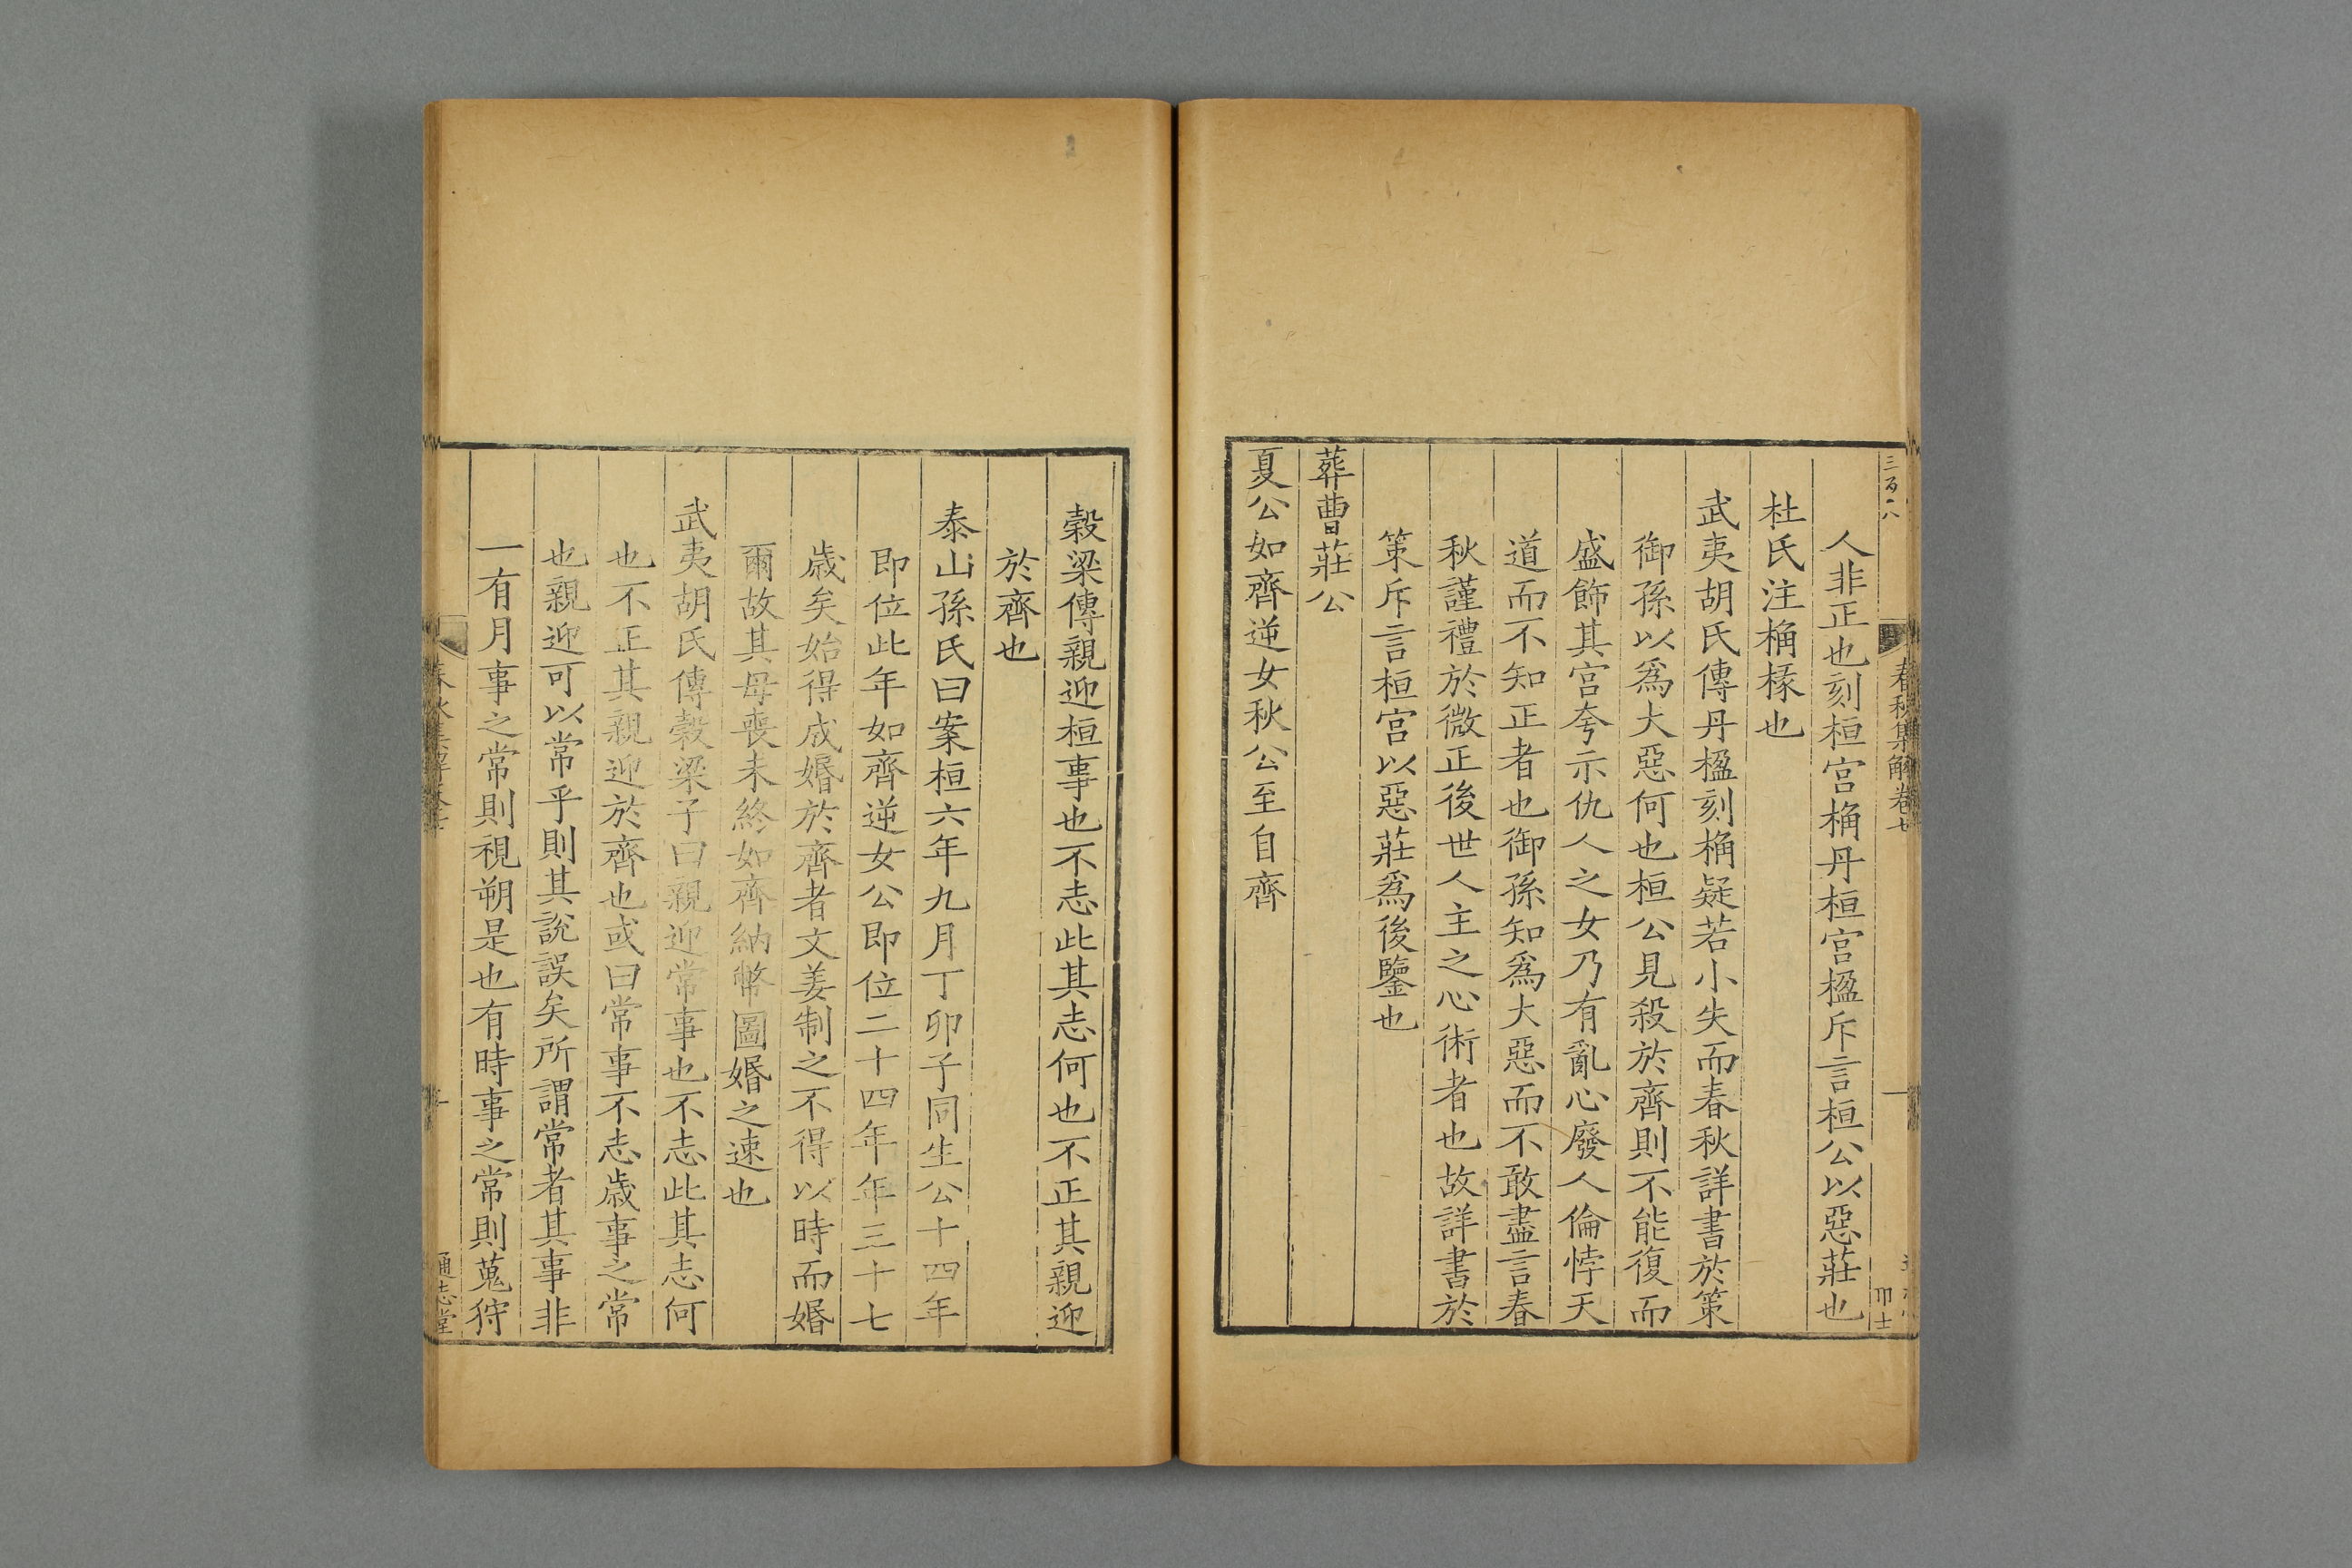 三百八
春秋集解卷七
人非正也刻桓宮桷丹桓宮楹斥言桓公以惡莊也
杜氏注桷椽也
武夷胡氏傳丹楹刻桷疑若小失而春秋詳書於策
御孫以爲大惡何也桓公見殺於齊則不能復而
盛飾其宮夸示仇人之女乃有亂心廢人倫悖天
道而不知正者也御孫知爲大惡而不敢盡言春
秋謹禮於微正後世人主之心術者也故詳書於
策斥言桓宮以惡莊爲後鑒也
葬曹莊公
夏公如齊逆女秋公至自齊
穀梁傳親迎桓事也不志此其志何也不正其親迎
於齊也
泰山孫氏曰案桓六年九月丁卯子同生公十四年
即位此年如齊逆女公即位二十四年年三十七
歲矣始得成婚於齊者文姜制之不得以時而婚
爾故其母喪未終如齊納幣圖婚之速也
武夷胡氏傳穀梁子曰親迎常事也不志此其志何
也不正其親迎於齊也或曰常事不志歲事之常
也親迎可以常乎則其說誤矣所謂常者其事非
一有月事之常則視朔是也有時事之常則蒐狩
通志堂